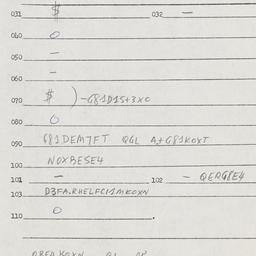 031 $ 032 —
040 O
050 —
060 —
070 $ )-G81D1S+3XC
080 O
090 681DEM7FT QGL A+G81KOXT
100 NOXBESE4
101 — 102 — QERG8E4
103 D3FA.RHELFC11MKOXN
110 O